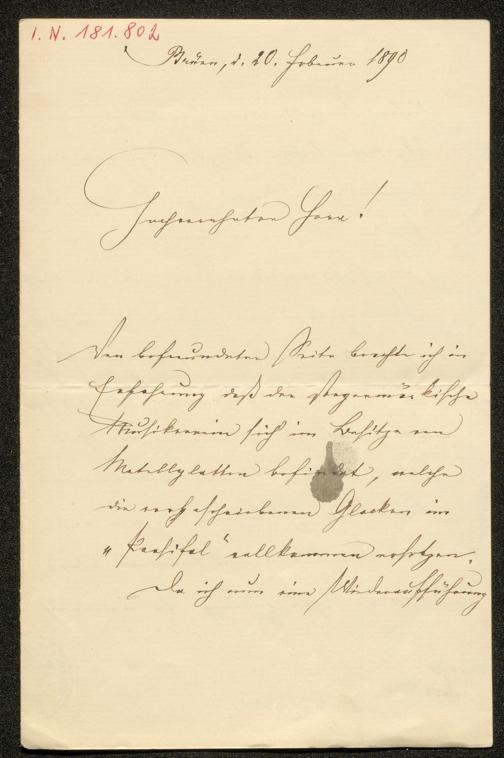 I. N. 181.802
Brünn, d. 20. Februar 1890
Hochverehrter Herr!
Von befreundeter Seite brachte ich in
Erfahrung daß der steyermärkische
Musikverein sich im Besitze von
Metallplatten befindet, welche
die vorgeschriebenen Glocken im
„Parsifal" vollkommen ersetzen.
Da ich nun eine Wiederaufführung